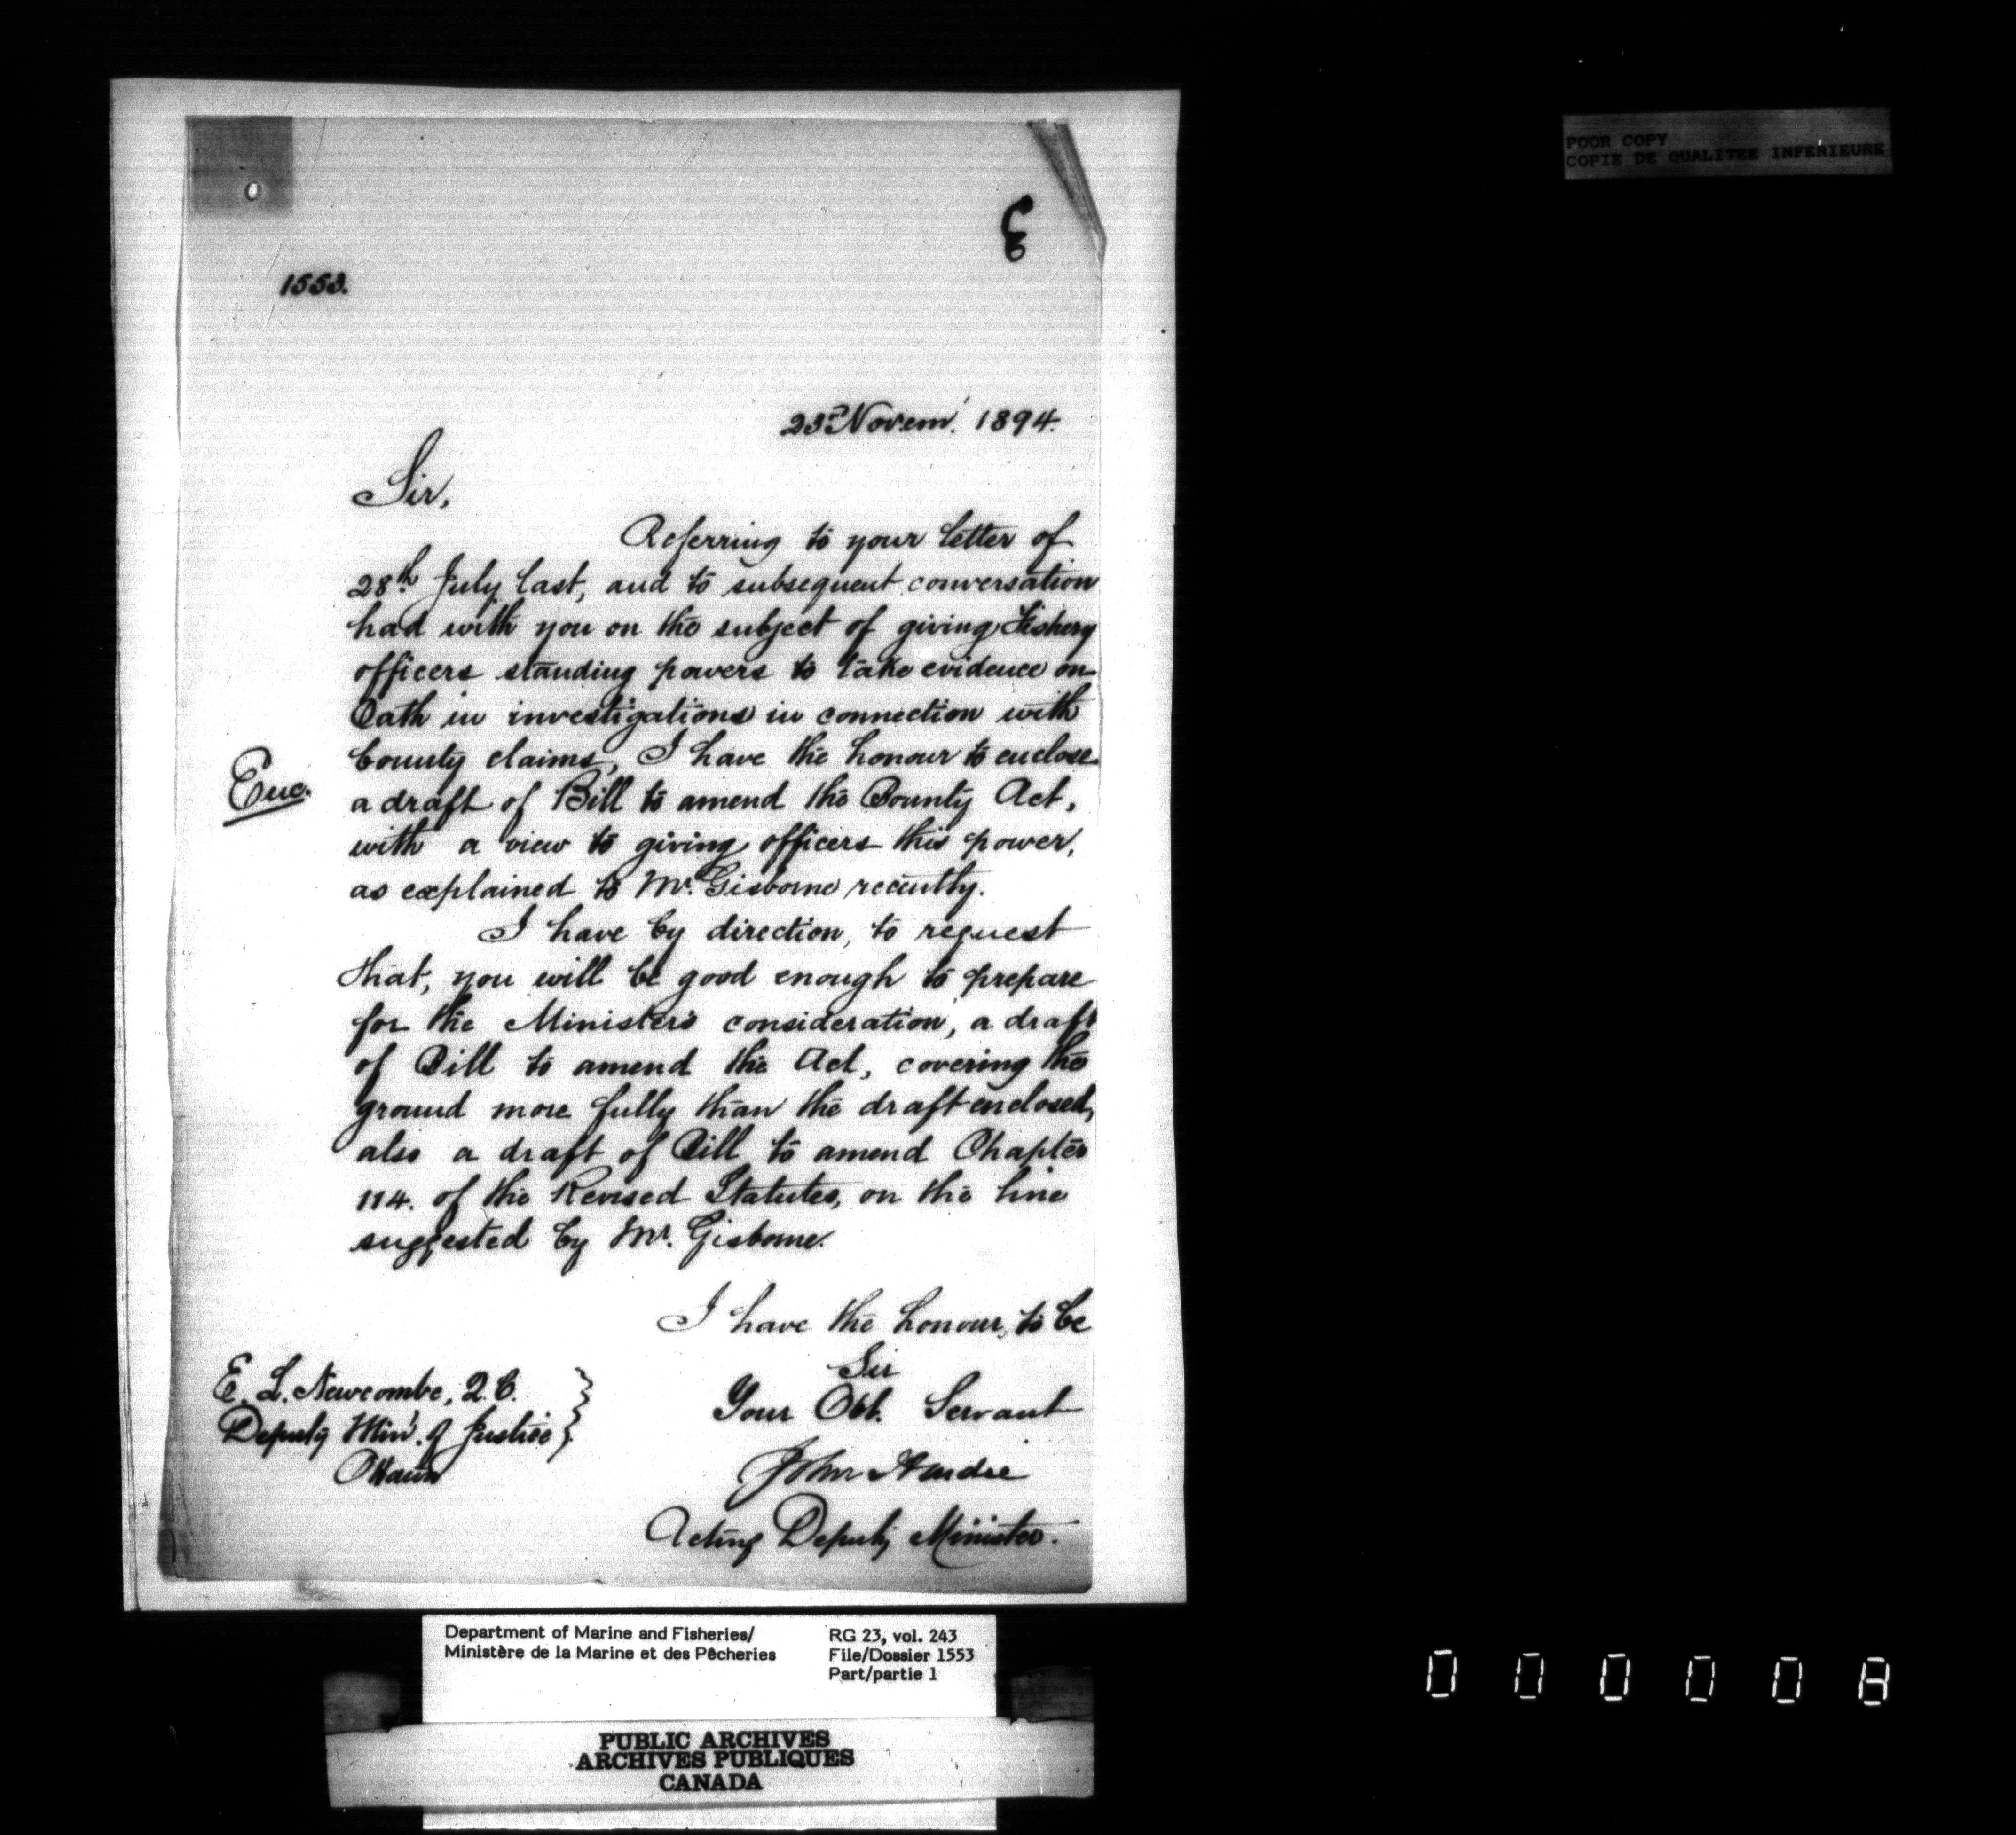 POOR COPY
COPIE DE QUALITEE INFERIEURE
1553.
23rd Novem'. 1894.
Sir,
Referring to your letter of
28th July last, and to subsequent conversation
had with you on the subject of giving Fishery
officers standing powers to take evidence on
Oath in investigations in connection with
bounty claims, I have the honour to enclose
Enc.
a draft of Bill to amend the Bounty Act,
with a view to giving officers this power,
as explained to Mr. Gisborne recently.
I have by direction, to request
that, you will be good enough to prepare
for the Minister's consideration, a draft
of Bill to amend the Act, covering the
ground more fully than the draft enclosed,
also a draft of Bill to amend Chapter
114. of the Revised Statutes, on the line
suggested by Mr. Gisborne.
I have the honour, to be
Sir
Your Obt. Servant
John Hardie
Acting Deputy Minister.
E. L. Newcombe, Q.C.
Deputy Min'. of Justice
Ottawa
Department of Marine and Fisheries/
Ministère de la Marine et des Pêcheries
RG 23, vol. 243
File/Dossier 1553
Part/partie 1
PUBLIC ARCHIVES
ARCHIVES PUBLIQUES
CANADA
000008